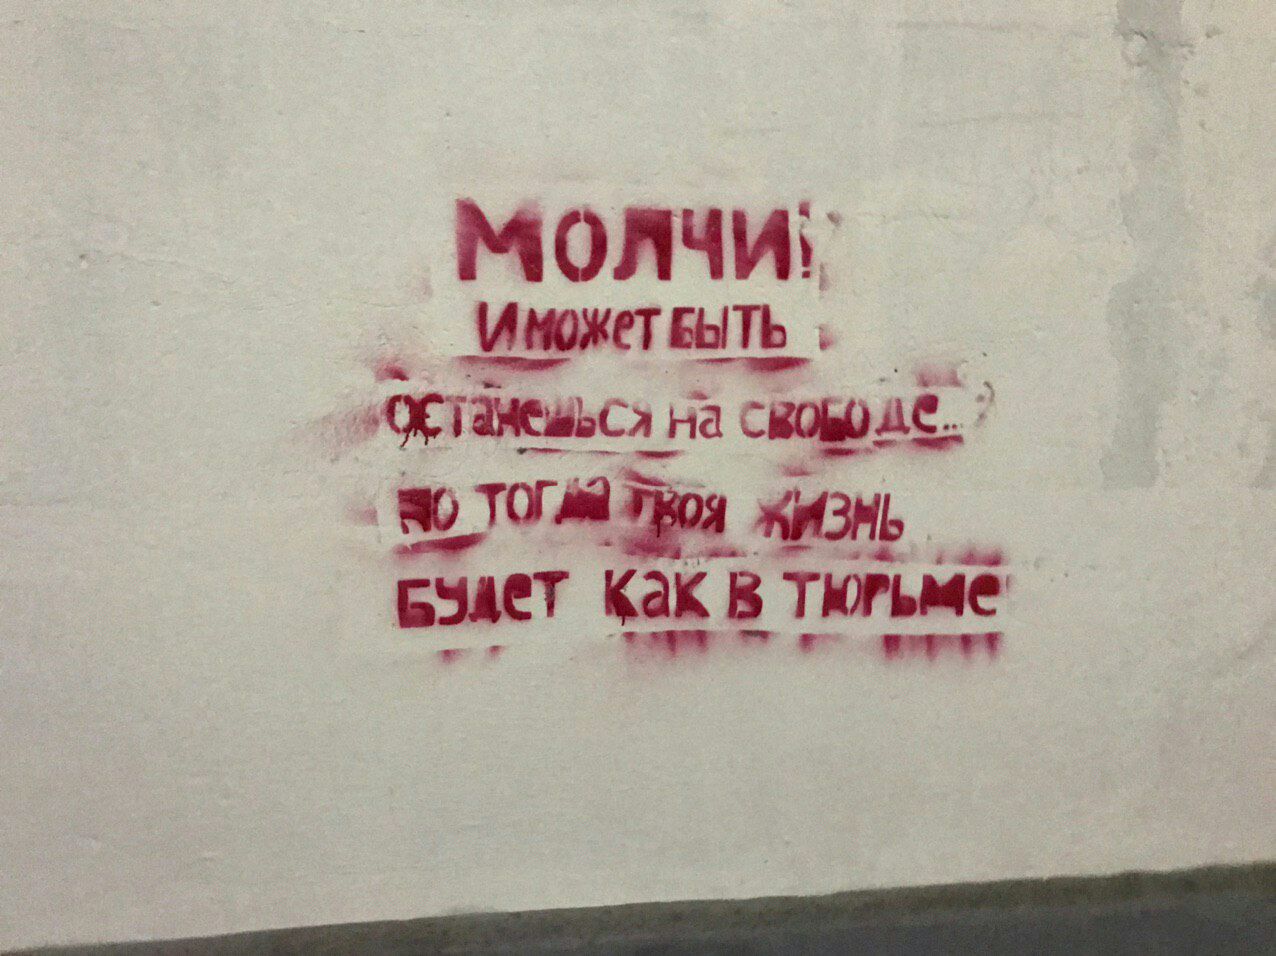 МОЛЧИ!
И может быть
останешься на свободе...
но тогда твоя жизнь
будет как в тюрьме